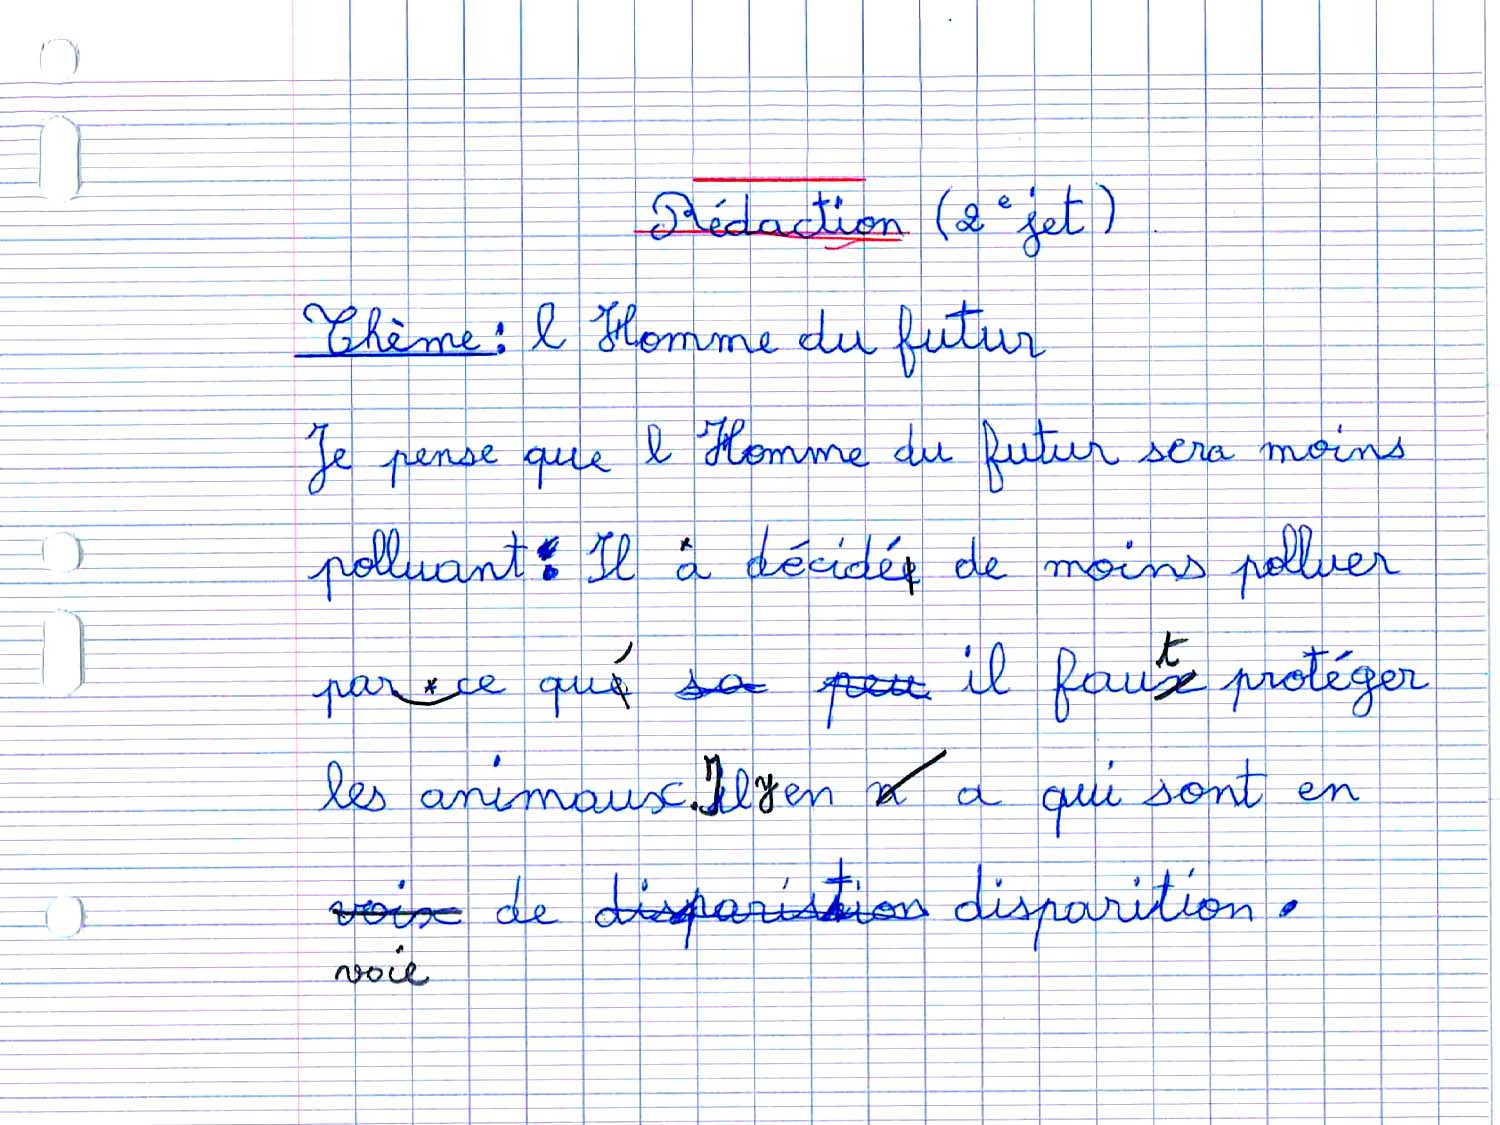 Rédaction (2e jet)
Thème : l Homme du futur
Je pense que l Homme du futur sera moins
polluant : Il a décidé de moins polluer
par ce que sa peu il faut protéger
les animaux. Il y en a qui sont en
voix de disparistion disparition.
voie